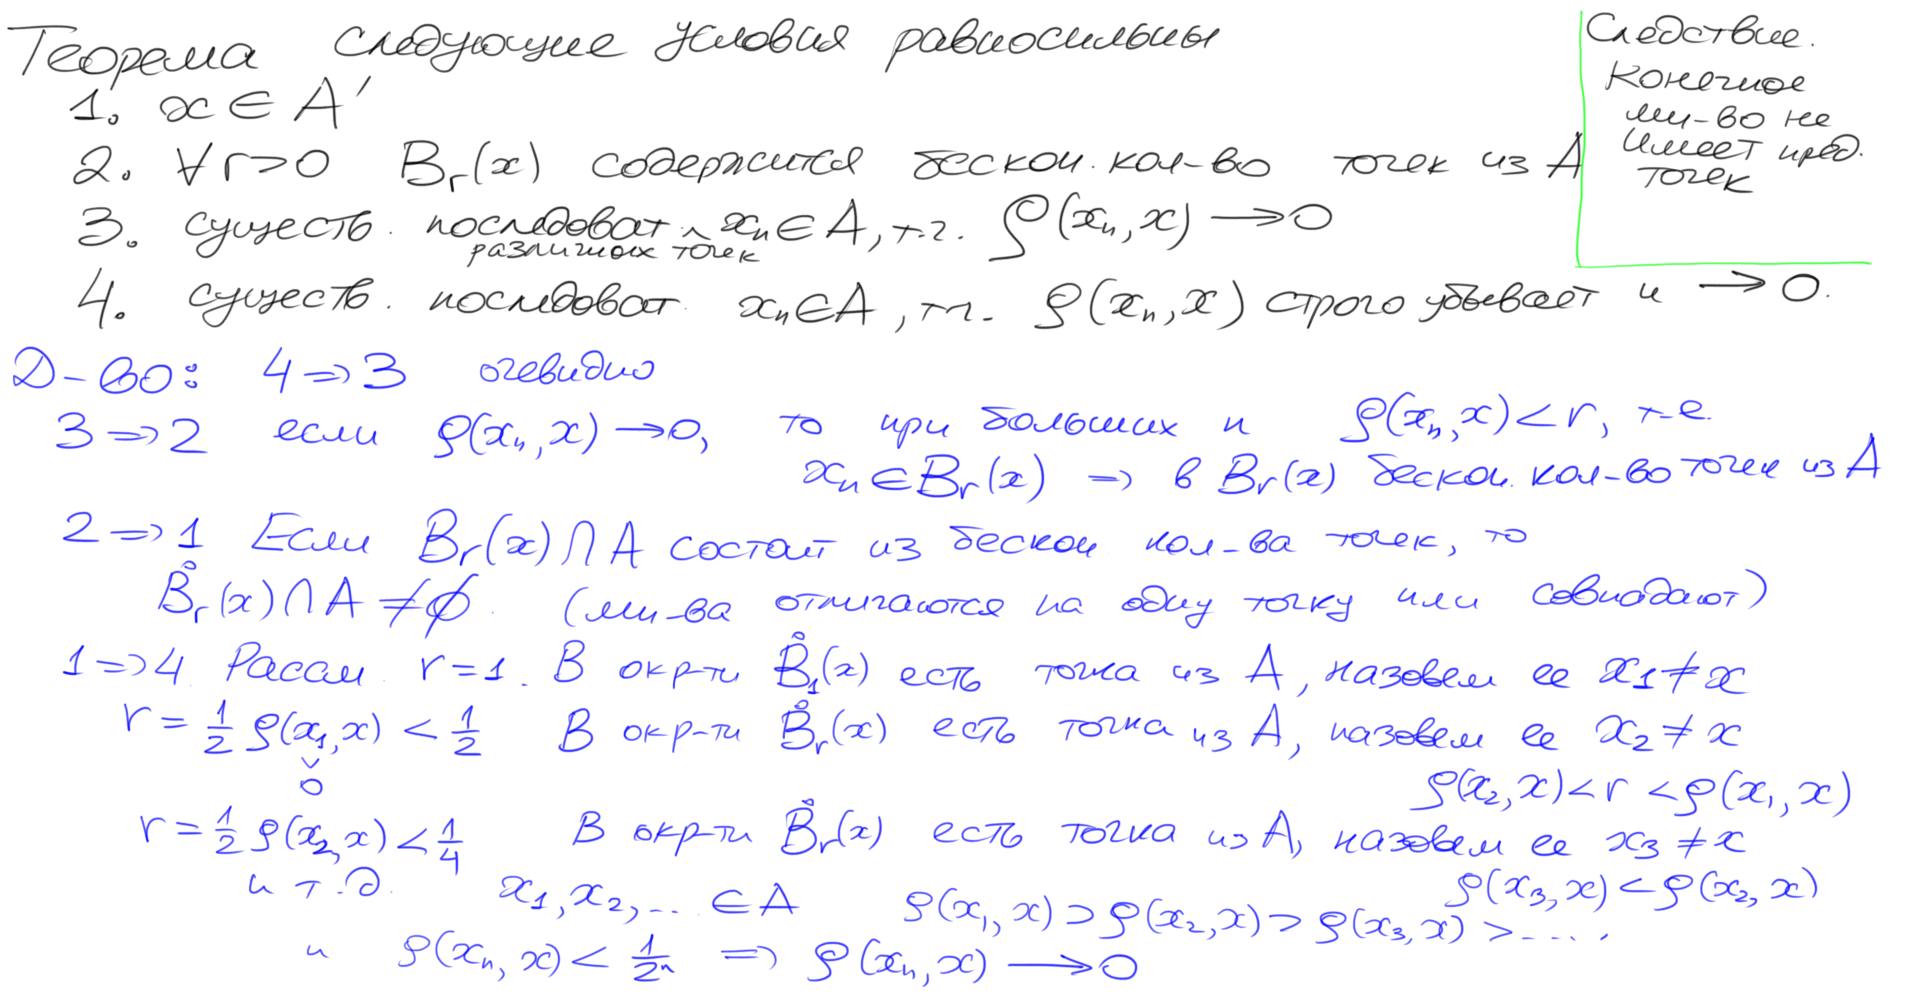 Теорема следующие условия равносильны
1. x ∈ A′
2. ∀ r>0 B_r(x) содержится бескон. кол-во точек из A
3. существ. последоват. ^ x_n ∈ A, т.ч. ρ(x_n, x) → 0
различных точек
4. существ. последоват. x_n ∈ A, т.ч. ρ(x_n, x) строго убывает и → 0.
Следствие.
Конечное
мн-во не
имеет пред.
точек
Д-во: 4 ⇒ 3 очевидно
3 ⇒ 2 если ρ(x_n, x) → 0, то при больших n ρ(x_n, x) < r, т.е.
x_n ∈ B_r(x) ⇒ в B_r(x) бескон. кол-во точек из A
2 ⇒ 1 Если B_r(x) ∩ A состоит из бескон кол-ва точек, то
B̊_r(x) ∩ A ≠ ∅. (мн-ва отличаются на одну точку или совпадают)
1 ⇒ 4 Рассм r = 1. В окр-ти B̊_1(x) есть точка из A, назовем ее x_1 ≠ x
r = 1/2 ρ(x_1, x) < 1/2 В окр-ти B̊_r(x) есть точка из A, назовем ее x_2 ≠ x
∨
0
ρ(x_2, x) < r < ρ(x_1, x)
r = 1/2 ρ(x_2, x) < 1/4 В окр-ти B̊_r(x) есть точка из A, назовем ее x_3 ≠ x
и т.д. ρ(x_3, x) < ρ(x_2, x)
x_1, x_2, ... ∈ A ρ(x_1, x) > ρ(x_2, x) > ρ(x_3, x) > ....
и ρ(x_n, x) < 1/2^n ⇒ ρ(x_n, x) → 0